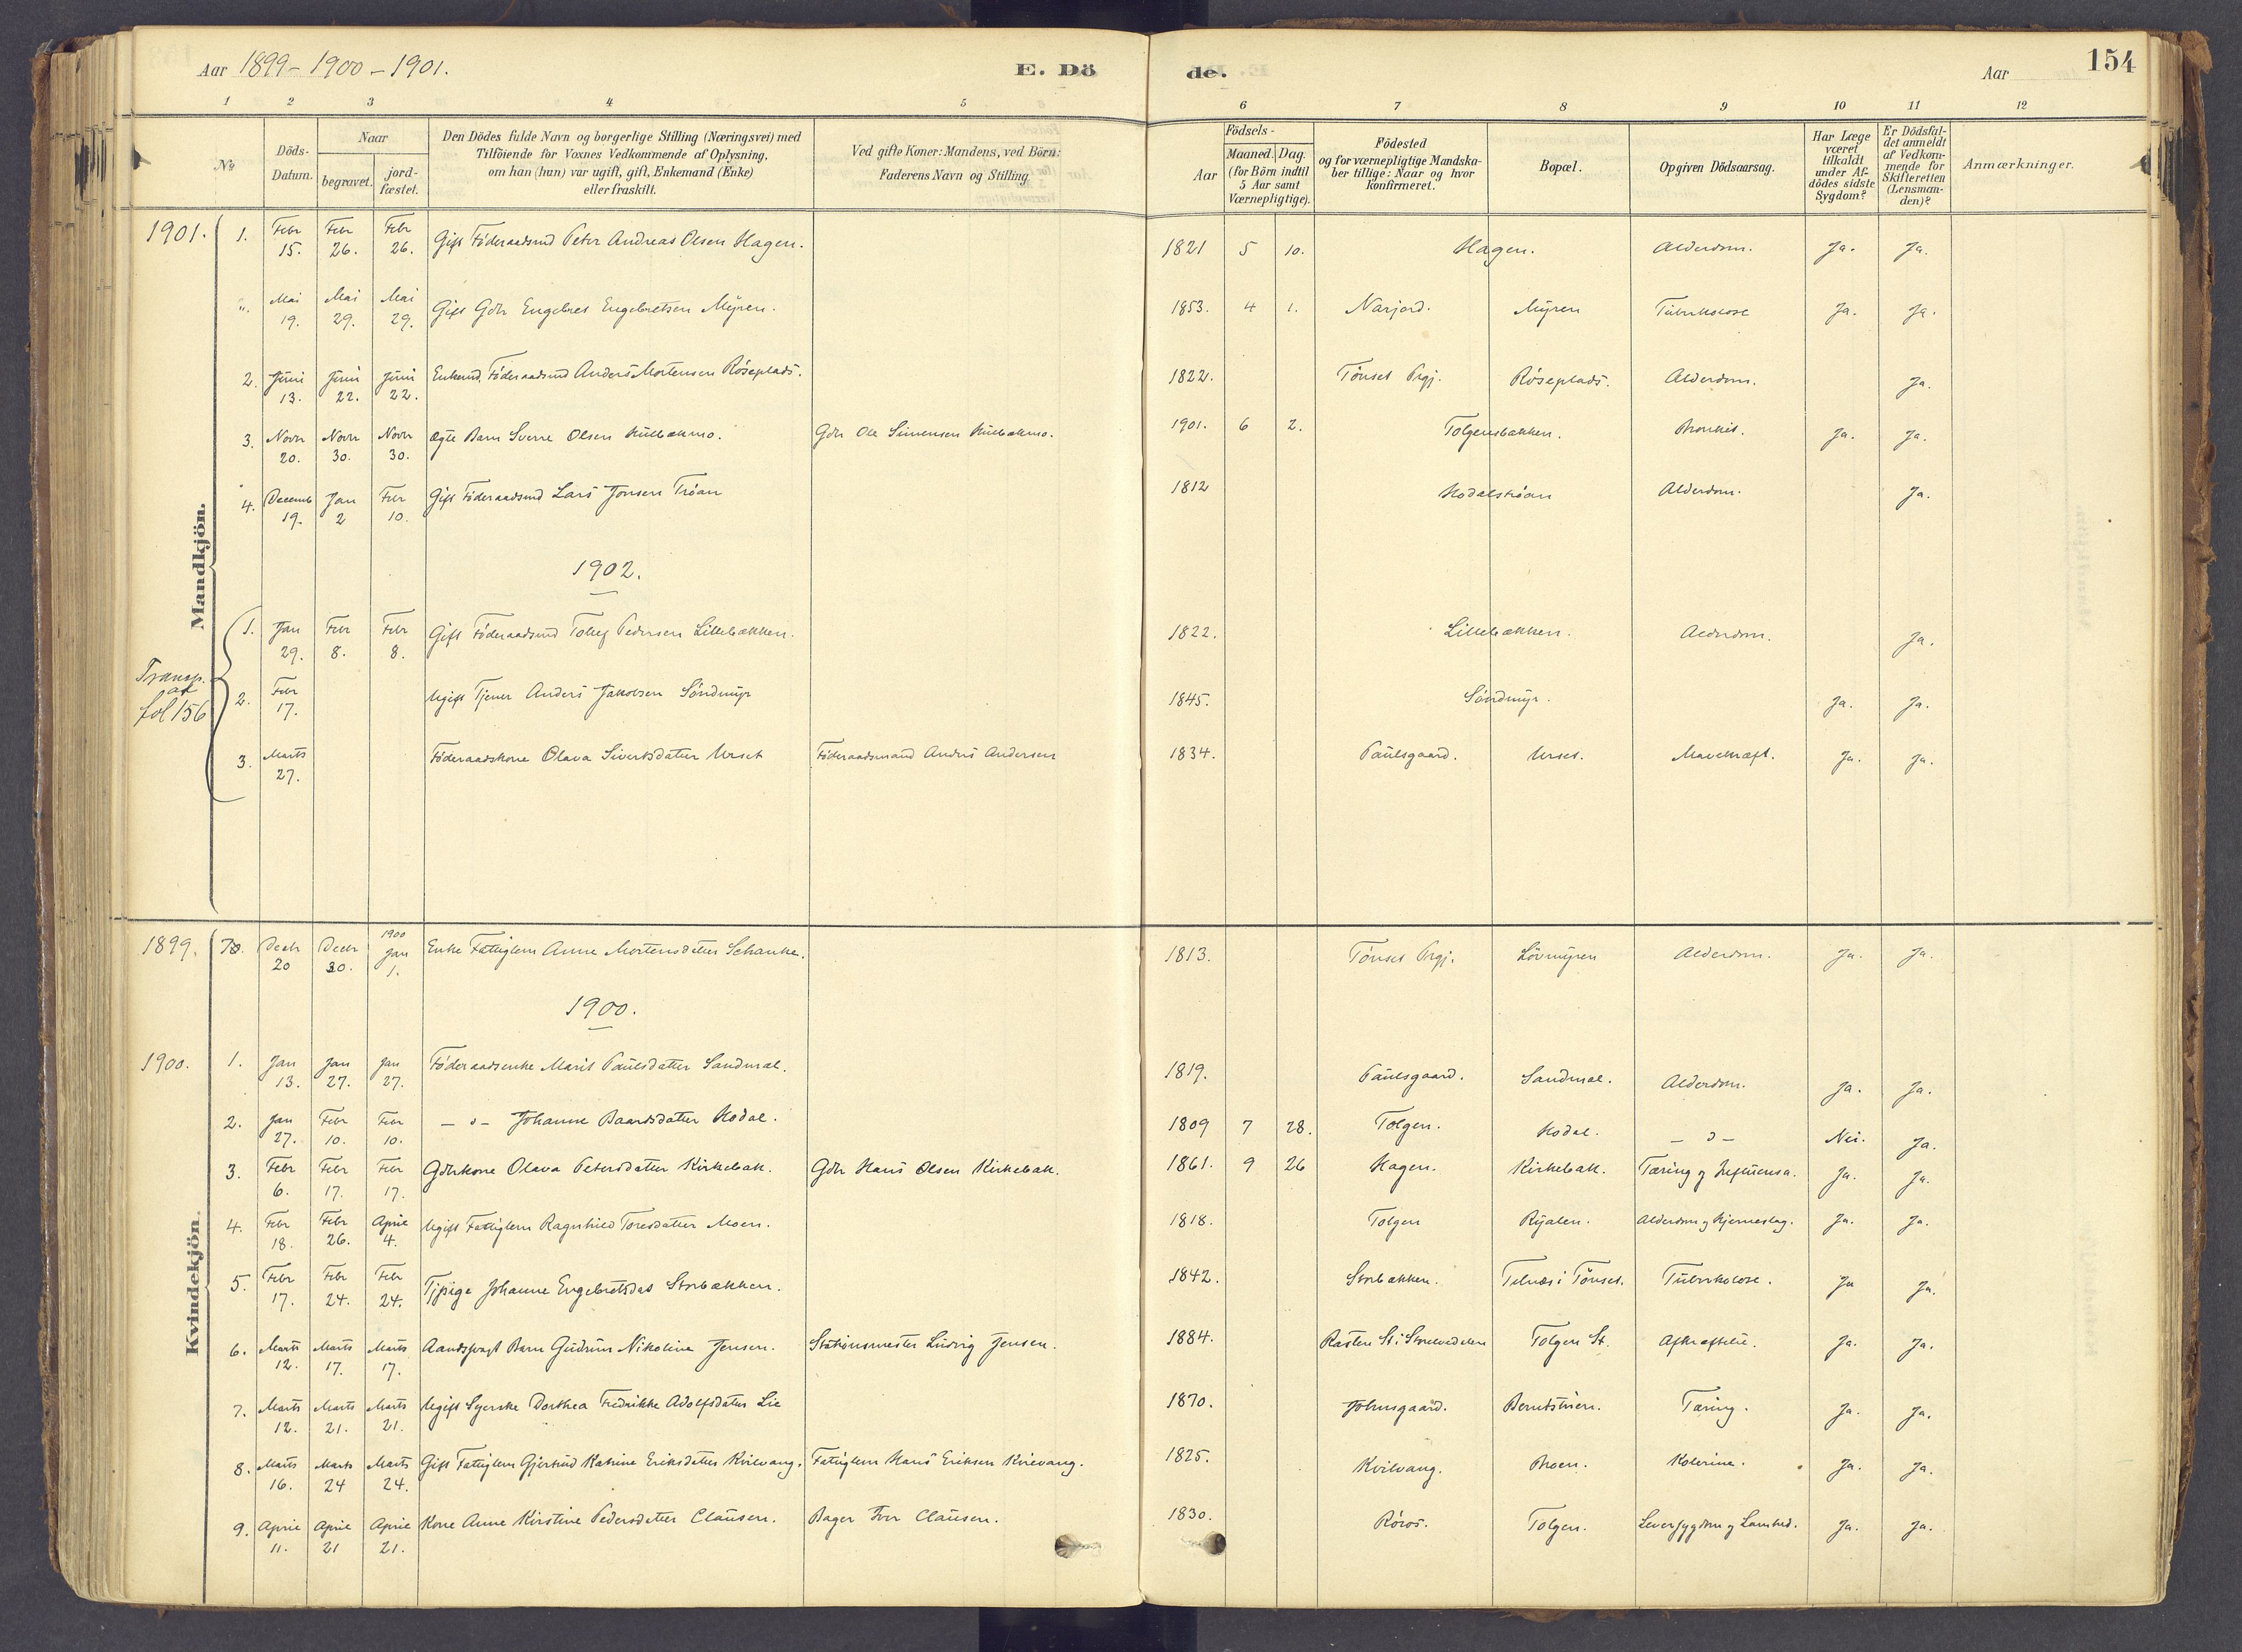 Aar 1899-1900-1901. E. Dö de. Aar 154
1 2 3 4 5 6 7 8 9 10 11 12
No Döds-Datum. Naar begravet. jord-fæstet. Den Dödes fulde Navn og borgerlige Stilling (Næringsvei) med Tilföiende for Voxnes Vedkommende af Oplysning, om han (hun) var ugift, gift, Enkemand (Enke) eller fraskilt. Ved gifte Koner: Mandens, ved Börn: Faderens Navn og Stilling. Födsels- Aar Maaned. Dag. (for Börn indtil 5 Aar samt Værnepligtige). Födested og for værnepligtige Mandskaber tillige: Naar og hvor konfirmeret. Bopæl. Opgiven Dödsaarsag. Har Læge været tilkaldt under Afdödes sidste Sygdom? Er Dödsfaldet anmeldt af Vedkommende for Skifteretten (Lensmanden)? Anmærkninger.
Mandkjön.
1901. 1. Febr 15. Febr 26. Febr 26. Gift Föderaadsmd Peter Andreas Olsen Hagen. 1821 5 10. Hagen. Alderdom. Ja. Ja.
". Mai 19. Mai 29. Mai 29. Gift Gdbr Engebret Engebretsen Myren. 1853. 4 1. Narjord. Myren Tuberkolose Ja. Ja.
2. Juni 13. Juni 22. Juni 22. Enkemd. Föderaadsmd Anders Mortensen Röseplads. 1822. Tönset Prgj. Röseplads. Alderdom. Ja.
3. Novbr 20. Novbr 30. Novbr 30. Ægte Barn Sverre Olsen Kulbækmo. Gdbr Ole Simensen Kulbækmo. 1901. 6 2. Tolgensbakken. Bronkit. Ja. Ja.
4. Decemb 19. Jan 2 Febr 10. Gift Föderaadsmd Lars Jonsen Tröan 1812 Hodalströan Alderdom. Ja.
1902.
1. Jan 29. Febr 8. Febr 8. Gift Föderaadsmd Tollef Pedersen Lillebækken. 1822. Lillebækken. Alderdom. Ja.
Transp. at fol 156
2. Febr 17. Ugift Tjener Anders Jakobsen Söndmyr 1845. Söndmyr. Ja. Ja.
3. Marts 27. Föderaadskone Olava Sivertsdatter Urset Föderaadsmand Anders Andersen 1834. Paulsgaard. Urset. Mavekræft. Ja. Ja.
Kvindekjön.
1899. Decbr 20 Decbr 30. 1900 Jan 1. Enke Fattiglem Anne Mortensdatter Schanke. 1813. Tönset Prgj. Lövmyren Alderdom. Ja. Ja.
1900.
1900. 1. Jan 13. Jan 27. Jan 27. Föderaadsenke Marit Paulsdatter Sandmæl. 1819. Paulsgaard. Sandmæl. Alderdom. Ja. Ja.
2. Jan 27. Febr 10. Febr 10. - „ - Johanne Baardsdatter Hodal. 1809 7 28. Tolgen. Hodal. - „ - Nei. Ja.
3. Febr 6. Febr 17. Febr 17. Gdbrkone Olava Petersdatter Kirkebak. Gdbr Hans Olsen Kirkebak. 1861. 9 26 Hagen. Kirkebak. Tæring og Influensa. Ja. Ja.
4. Febr 18. Febr 26. April 4. Ugift Fattiglem Ragnhild Toresdatter Moen. 1818. Tolgen Ryalen. Alderdom og Hjerneslag. Ja. Ja.
5. Febr 17. Febr 24. Febr 24. Tjpige Johanne Engebretsdat Storbækken. 1842. Storbækken. Telnæs i Tönset. Tuberkolose. Ja Ja.
6. Marts 12. Marts 17. Marts 17. Aandssvagt Barn Gudrun Nikoline Jensen. Stationsmester Ludvig Jensen. 1884. Rasten St. i Storelvedalen Tolgen St. Afkræftelse. Ja. Ja.
7. Marts 12. Marts 21. Marts 21. Ugift Syerske Dorthea Fredrikke Adolfsdatter Lie 1870. Johnsgaard. Berntstuen. Tæring. Ja. Ja.
8. Marts 16. Marts 24 Marts 24. Gift Fattiglem Gjertrud Katrine Eriksdatter Kvilvang. Fattiglem Hans Eriksen Kvilvang. 1825. Kvilvang. Broen. Kolerine. Ja. Ja.
9. April 11. April 21 April 21. Kone Anne Kirstine Pedersdatter Clausen. Bager Iver Clausen. 1830. Röros. Tolgen. Leversygdom og Lamhed. Ja. Ja.